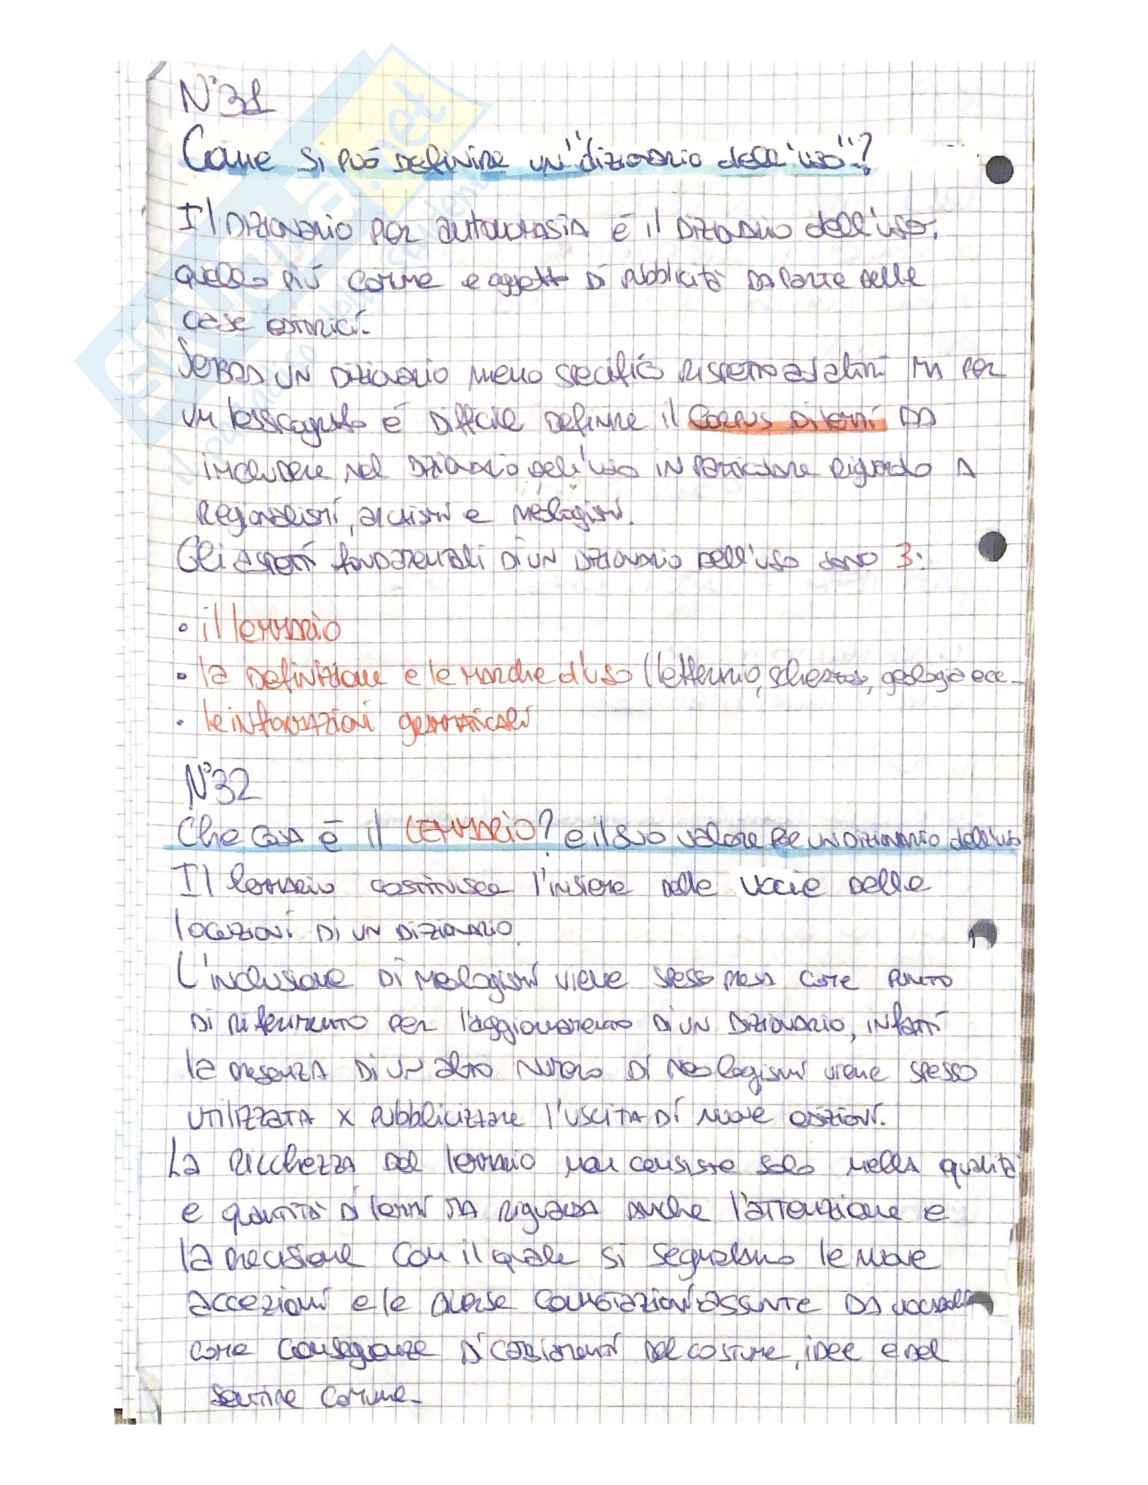 N°31
Come si può definire un "dizionario dell'uso"?
Il Dizionario per antonomasia è il Dizionario dell'uso,
quello più comune e oggetto di pubblicità da parte delle
case editrici.
Sebbene un dizionario meno specifico rispetto ad altri ma per
un lessicografo è difficile definire il Corpus di lemmi da
includere nel dizionario dell'uso in particolare riguardo a
Regionalismi, arcaismi e neologismi.
Gli aspetti fondamentali di un dizionario dell'uso sono 3:
• il lemmario
• la definizione e le marche d'uso (letterario, scherzoso, geologia ecc.
• le informazioni grammaticali
N°32
Che cosa è il lemmario? e il suo valore per un dizionario dell'uso
Il lemmario costituisce l'insieme delle voci e delle
locuzioni di un dizionario.
L'inclusione di neologismi viene spesso presa come punto
di riferimento per l'aggiornamento di un dizionario, infatti
la presenza di un alto numero di neologismi viene spesso
utilizzata x pubblicizzare l'uscita di nuove edizioni.
La ricchezza del lemmario non consiste solo nella qualità
e quantità di lemmi ma riguarda anche l'attenzione e
la precisione con il quale si segnalano le nuove
accezioni e le diverse connotazioni assunte da vocaboli
come conseguenze di cambiamenti del costume, idee e del
sentire comune.